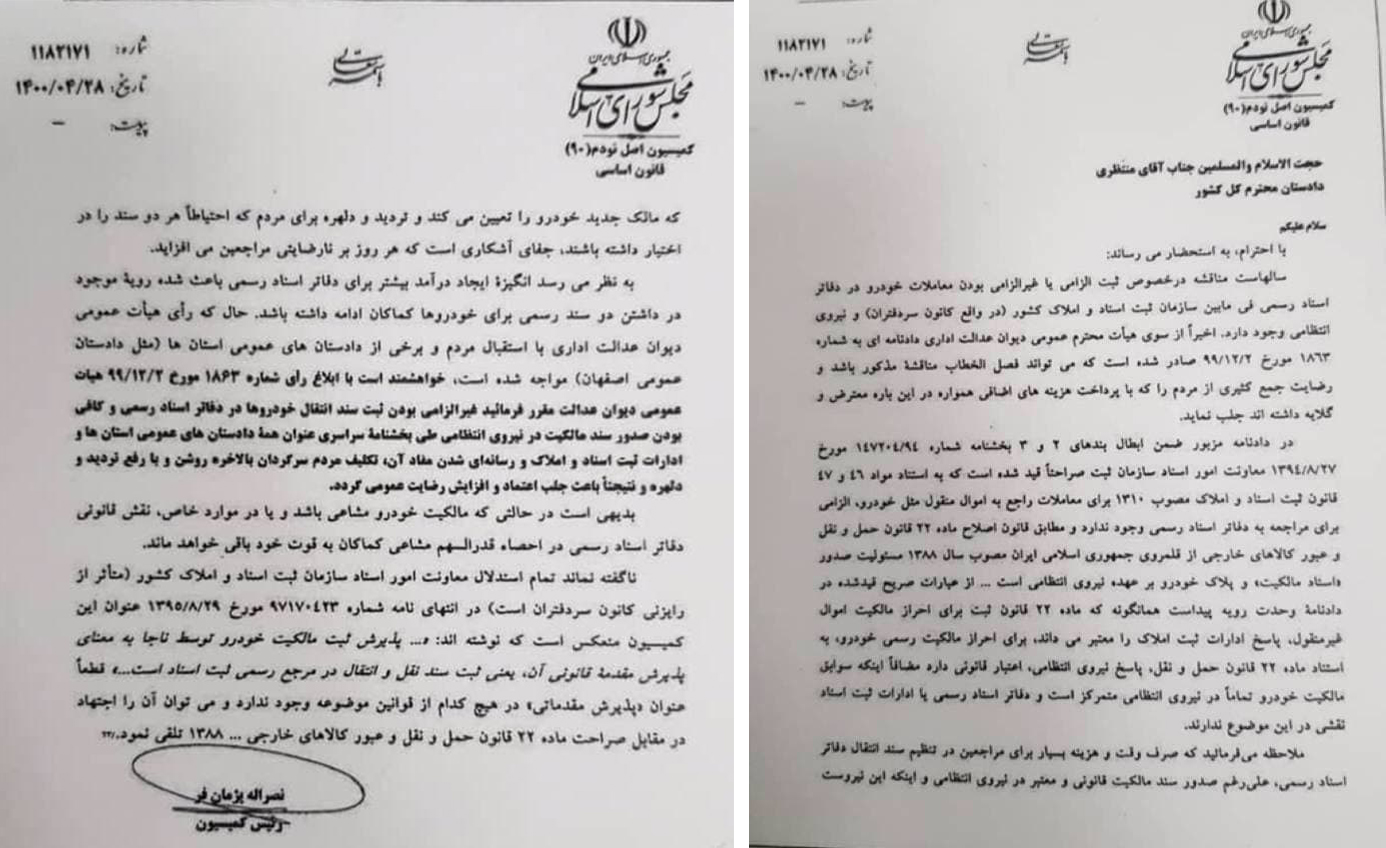 جمهوری اسلامی ایران
مجلس شورای اسلامی
کمیسیون اصل نودم(۹۰)
قانون اساسی
باسمه تعالی
شماره: ۱۱۸۲۱۷۱
تاریخ: ۱۴۰۰/۰۴/۲۸
پیوست: –
حجت الاسلام والمسلمین جناب آقای منتظری
دادستان محترم کل کشور
سلام علیکم
با احترام، به استحضار می رساند:
سالهاست مناقشه درخصوص ثبت الزامی یا غیرالزامی بودن معاملات خودرو در دفاتر
اسناد رسمی فی مابین سازمان ثبت اسناد و املاک کشور (در واقع کانون سردفتران) و نیروی
انتظامی وجود دارد. اخیراً از سوی هیأت محترم عمومی دیوان عدالت اداری دادنامه ای به شماره
۱۸۶۳ مورخ ۹۹/۱۲/۲ صادر شده است که می تواند فصل الخطاب مناقشهٔ مذکور باشد و
رضایت جمع کثیری از مردم را که با پرداخت هزینه های اضافی همواره در این باره معترض و
گلایه داشته اند جلب نماید.
در دادنامه مزبور ضمن ابطال بندهای ۲ و ۳ بخشنامه شماره ۱۴۷۲۰۴/۹۴ مورخ
۱۳۹۴/۸/۲۷ معاونت امور اسناد سازمان ثبت صراحتاً قید شده است که به استناد مواد ۴۶ و ۴۷
قانون ثبت اسناد و املاک مصوب ۱۳۱۰ برای معاملات راجع به اموال منقول مثل خودرو، الزامی
برای مراجعه به دفاتر اسناد رسمی وجود ندارد و مطابق قانون اصلاح ماده ۲۲ قانون حمل و نقل
و عبور کالاهای خارجی از قلمروی جمهوری اسلامی ایران مصوب سال ۱۳۸۸ مسئولیت صدور
«اسناد مالکیت» و پلاک خودرو بر عهده نیروی انتظامی است ... از عبارات صریح قیدشده در
دادنامهٔ وحدت رویه پیداست همانگونه که ماده ۲۲ قانون ثبت برای احراز مالکیت اموال
غیرمنقول، پاسخ ادارات ثبت املاک را معتبر می داند، برای احراز مالکیت رسمی خودرو، به
استناد ماده ۲۲ قانون حمل و نقل، پاسخ نیروی انتظامی، اعتبار قانونی دارد مضافاً اینکه سوابق
مالکیت خودرو تماماً در نیروی انتظامی متمرکز است و دفاتر اسناد رسمی یا ادارات ثبت اسناد
نقشی در این موضوع ندارند.
ملاحظه می‌فرمائید که صرف وقت و هزینه بسیار برای مراجعین در تنظیم سند انتقال دفاتر
اسناد رسمی، علی‌رغم صدور سند مالکیت قانونی و معتبر در نیروی انتظامی و اینکه این نیروست
جمهوری اسلامی ایران
مجلس شورای اسلامی
کمیسیون اصل نودم(۹۰)
قانون اساسی
باسمه تعالی
شماره: ۱۱۸۲۱۷۱
تاریخ: ۱۴۰۰/۰۴/۲۸
پیوست: –
که مالک جدید خودرو را تعیین می کند و تردید و دلهره برای مردم که احتیاطاً هر دو سند را در
اختیار داشته باشند، جفای آشکاری است که هر روز بر نارضایتی مراجعین می افزاید.
به نظر می رسد انگیزهٔ ایجاد درآمد بیشتر برای دفاتر اسناد رسمی باعث شده رویهٔ موجود
در داشتن دو سند رسمی برای خودروها کماکان ادامه داشته باشد. حال که رأی هیأت عمومی
دیوان عدالت اداری با استقبال مردم و برخی از دادستان های عمومی استان ها (مثل دادستان
عمومی اصفهان) مواجه شده است، خواهشمند است با ابلاغ رأی شماره ۱۸۶۳ مورخ ۹۹/۱۲/۲ هیات
عمومی دیوان عدالت مقرر فرمائید غیرالزامی بودن ثبت سند انتقال خودروها در دفاتر اسناد رسمی و کافی
بودن صدور سند مالکیت در نیروی انتظامی طی بخشنامهٔ سراسری عنوان همهٔ دادستان های عمومی استان ها و
ادارات ثبت اسناد و املاک و رسانه‌ای شدن مفاد آن، تکلیف مردم سرگردان بالاخره روشن و با رفع تردید و
دلهره و نتیجتاً باعث جلب اعتماد و افزایش رضایت عمومی گردد.
بدیهی است در حالتی که مالکیت خودرو مشاعی باشد و یا در موارد خاص، نقش قانونی
دفاتر اسناد رسمی در احصاء قدرالسهم مشاعی کماکان به قوت خود باقی خواهد ماند.
ناگفته نماند تمام استدلال معاونت امور اسناد سازمان ثبت اسناد و املاک کشور (متأثر از
رایزنی کانون سردفتران است) در انتهای نامه شماره ۹۷۱۷۰۴۲۳ مورخ ۱۳۹۵/۸/۲۹ عنوان این
کمیسیون منعکس است که نوشته اند: «... پذیرش ثبت مالکیت خودرو توسط ناجا به معنای
پذیرش مقدمهٔ قانونی آن، یعنی ثبت سند نقل و انتقال در مرجع رسمی ثبت اسناد است...» قطعاً
عنوان «پذیرش مقدماتی» در هیچ کدام از قوانین موضوعه وجود ندارد و می توان آن را اجتهاد
در مقابل صراحت ماده ۲۲ قانون حمل و نقل و عبور کالاهای خارجی ... ۱۳۸۸ تلقی نمود.
نصراله پژمان فر
رئیس کمیسیون